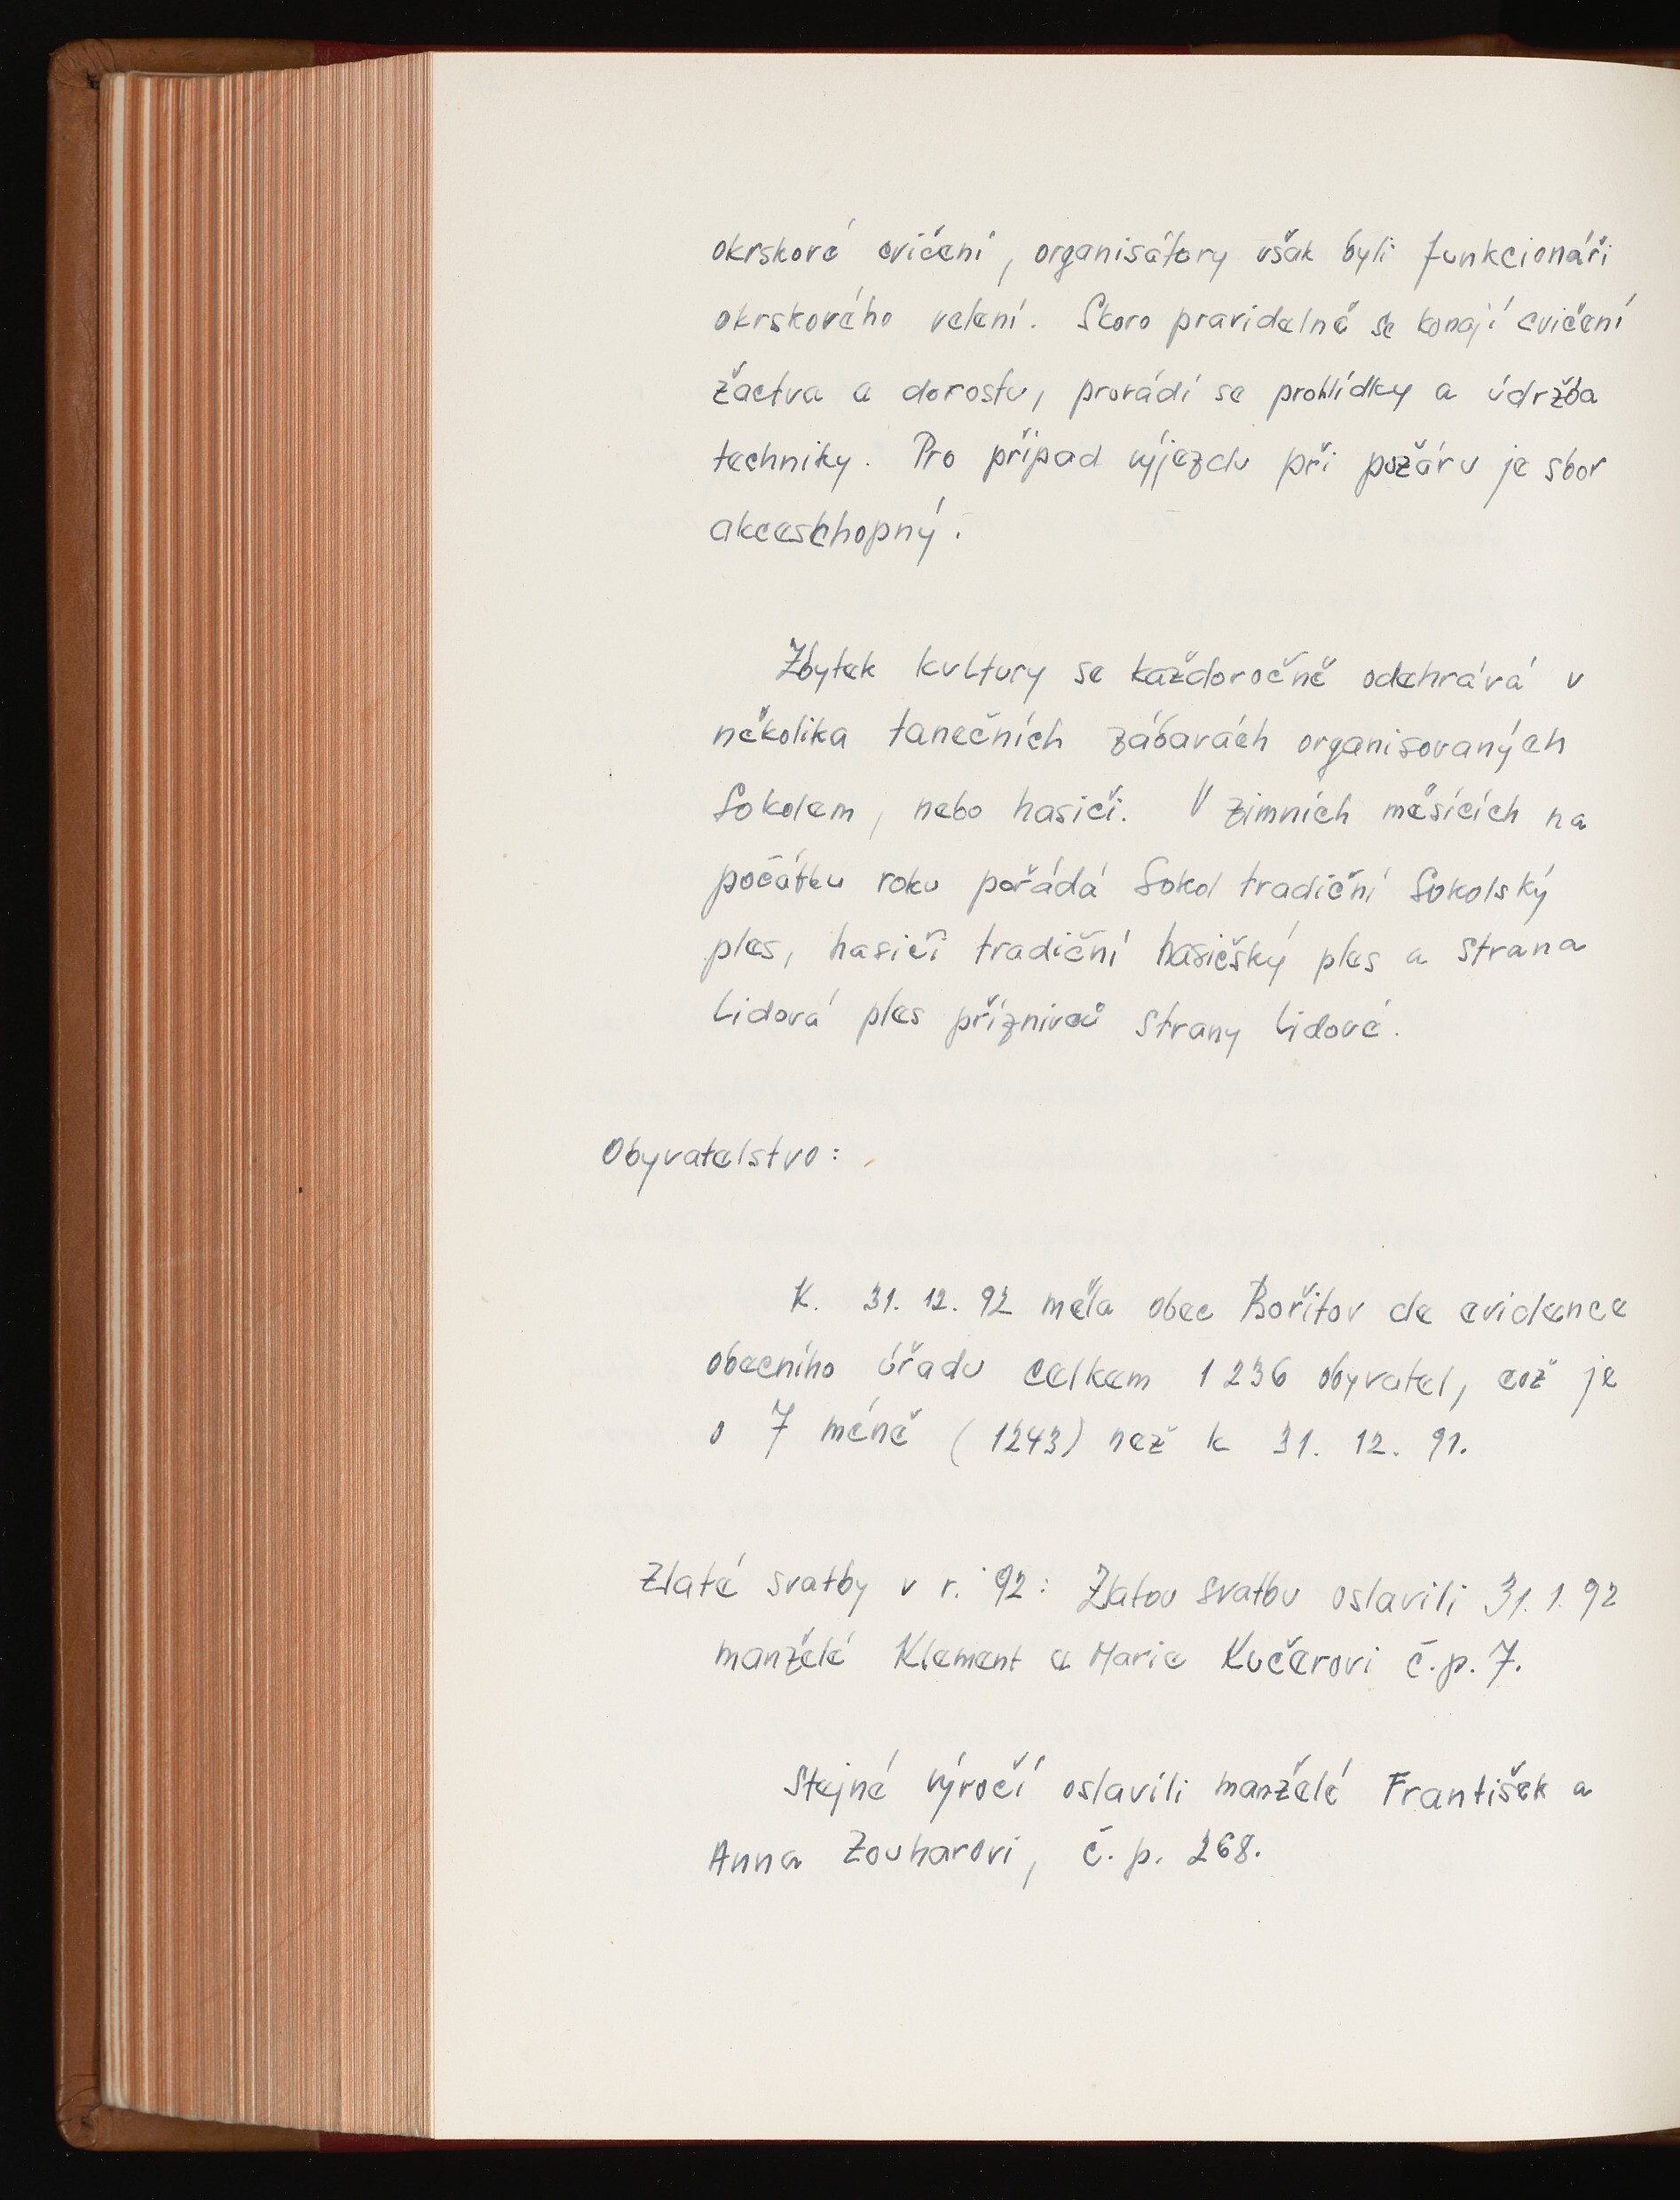 okrskové cvičení, organisátory však byli funkcionáři
okrskového velení. Skoro pravidelně se konají cvičení
žactva a dorostu, provádí se prohlídky a údržba
techniky. Pro případ výjezdu při požáru je sbor
akceschopný.
Zbytek kultury se každoročně odehrává v
několika tanečních zábavách organisovaných
Sokolem, nebo hasiči. V zimních měsících na
počátku roku pořádá Sokol tradiční Sokolský
ples, hasiči tradiční hasičský ples a Strana
Lidová ples příznivců Strany Lidové.
Obyvatelstvo:
K. 31. 12. 92 měla obec Bořitov de evidence
obecního úřadu celkem 1236 obyvatel, což je
o 7 méně (1243) než k 31. 12. 91.
Zlaté svatby v r. 92: Zlatou svatbu oslavili 31. 1. 92
manželé Klement a Marie Kučerovi č.p. 7.
Stejné výročí oslavili manželé František a
Anna Zouharovi, č. p. 268.